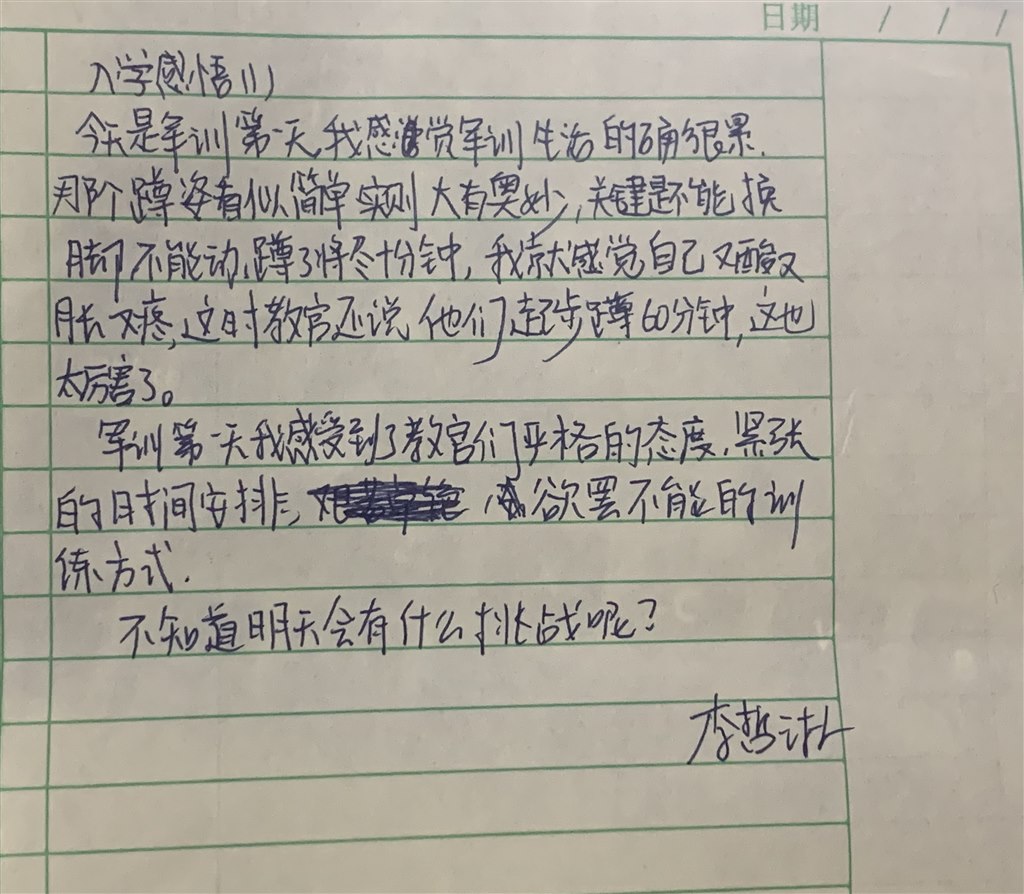 日期 / / /
入学感悟(1)
今天是军训第一天,我感觉军训生活的确很累.
那个蹲姿看似简单实则大有奥妙,关键是不能换
脚不能动,蹲了将尽十分钟,我就感觉自己又酸又
胀又疼,这时教官还说他们起步蹲60分钟,这也
太厉害了。
军训第一天我感受到了教官们严格的态度,紧张
的时间安排,欲罢不能的训
练方式.
不知道明天会有什么挑战呢?
李哲